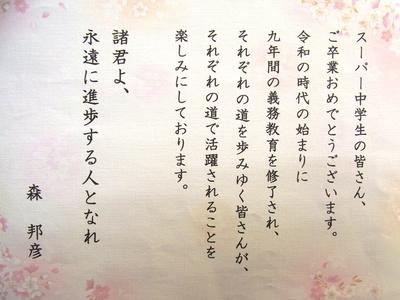 スーパー中学生の皆さん、
ご卒業おめでとうございます。
令和の時代の始まりに
九年間の義務教育を修了され、
それぞれの道を歩みゆく皆さんが、
それぞれの道で活躍されることを
楽しみにしております。
諸君よ、
永遠に進歩する人となれ
森 邦彦